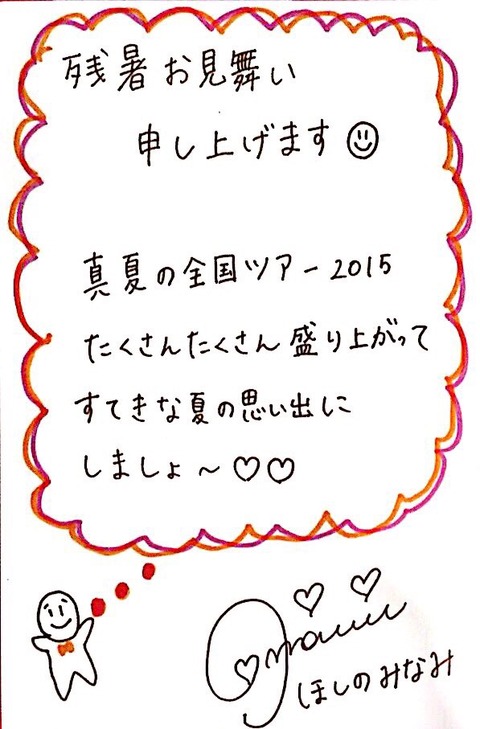 残暑お見舞い
申し上げます
真夏の全国ツアー2015
たくさんたくさん盛り上がって
すてきな夏の思い出に
しましょ～♡♡
ほしのみなみ